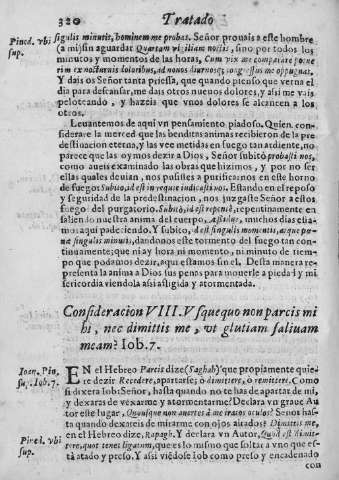 320 Tratado
Pined. vbi sup.
singulis minutis, hominem me probas. Señor prouais a este hombre
(a mi) sin aguardar Quartam vigiliam noctis, sino por todos los
minutos y momentos de las horas, Cum vix me comparare pote
rim ex nocturnis doloribus, ad nouos diurnos; congressus me oppugnas,
Y dais os Señor tanta priessa, que quando pienso que verna el
dia para descansar, me dais otros nueuos dolores, y assi me vais
peloteando, y hazeis que vnos dolores se alcancen a los
otros.
Leuantemos de aqui vn pensamiento piadoso. Quien con-
siderare la merced que las benditas animas recibieron de la pre
destinacion eterna, y las vee metidas en fuego tan ardiente, no
parece que las oymos dezir a Dios, Señor subito probasti nos,
como aueis examinado las obras que hizimos, y por no ser
ellas quales deuian, nos pusistes a purificarnos en este horno
de fuego? Subito, id est in requie iudicasti nos. Estando en el reposo
y seguridad de la predestinacion, nos juzgaste Señor a estos
fuego del purgatorio. Subito, id est repentè, repentinamente en
saliendo nuestra anima del cuerpo, muchos dias esta-
mos aqui padeciendo. Y subito, id est singulis momentis, ac que poe
na singulis minutis, dandonos este tormento del fuego tan con-
tinuamente; que ni ay hora ni momento, ni minuto de tiem-
po que podamos dezir, aqui estamos sin el. Desta manera re-
presenta la anima a Dios sus penas para mouerle a piedad y mi
sericordia viendola assi afligida y atormentada.
Consideracion VIII. Vsquequo non parcis mi
hi, nec dimittis me, vt glutiam saliuam
meam? Iob. 7.
Ioan. Pin.
sup. Iob. 7.
EN el Hebreo Parcis dize (Saghah) que propiamente quie-
re dezir Recedere, apartarse; ò dimittere, ò remittere. Como
si dixera Iob: Señor, hasta quando no te has de apartar de mi,
y dexaras de vexarme y atormentarme? Declara vn graue Au
tor este lugar, Quousque non auertes à me truces oculos? Señor has-
ta quando dexareis de mirarme con ojos airados? Dimittis me,
en el Hebreo dize, Rapagh. Y declara vn Autor, Quod est dimit-
tere, quos tenes ligatum, que es lo mismo que soltar a vno que es-
tà atado y preso. Y assi viedose Iob como preso y encadenado
Pined. vbi
sup.
con